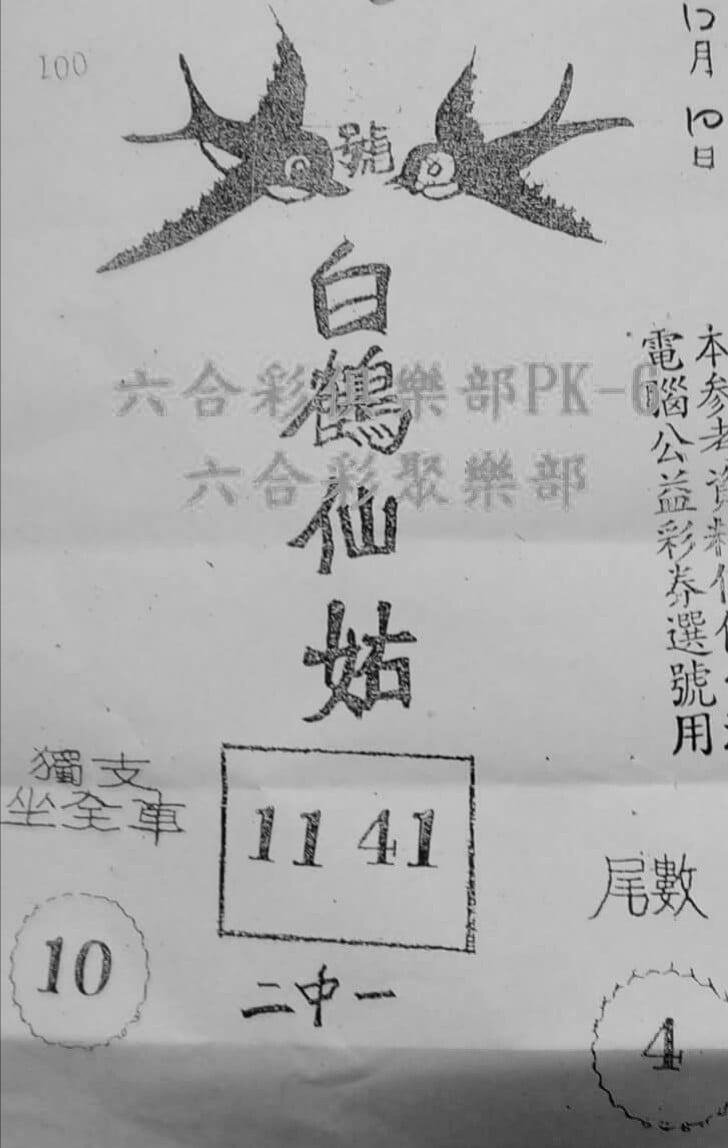 100
號
白鶴仙姑
六合彩聚樂部PK-6
六合彩聚樂部
本參考資料
電腦公益彩券選號用
獨支
坐全車
10
11 41
二中一
尾數
4